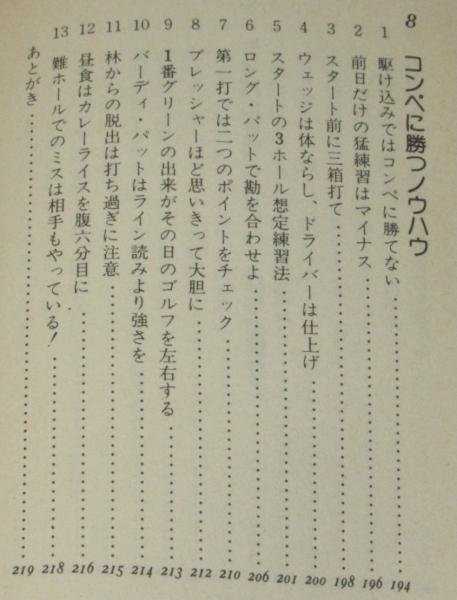 8 コンペに勝つノウハウ
1 駆け込みではコンペに勝てない……………194
2 前日だけの猛練習はマイナス……………196
3 スタート前に三箱打て……………198
4 ウェッジは体ならし、ドライバーは仕上げ……………200
5 スタートの3ホール想定練習法……………201
6 ロング・パットで勘を合わせよ……………206
7 第一打では二つのポイントをチェック……………210
8 プレッシャーほど思いきって大胆に……………212
9 1番グリーンの出来がその日のゴルフを左右する……………213
10 バーディ・パットはライン読みより強さを……………214
11 林からの脱出は打ち過ぎに注意……………215
12 昼食はカレーライスを腹六分目に……………216
13 難ホールでのミスは相手もやっている！……………218
あとがき……………219